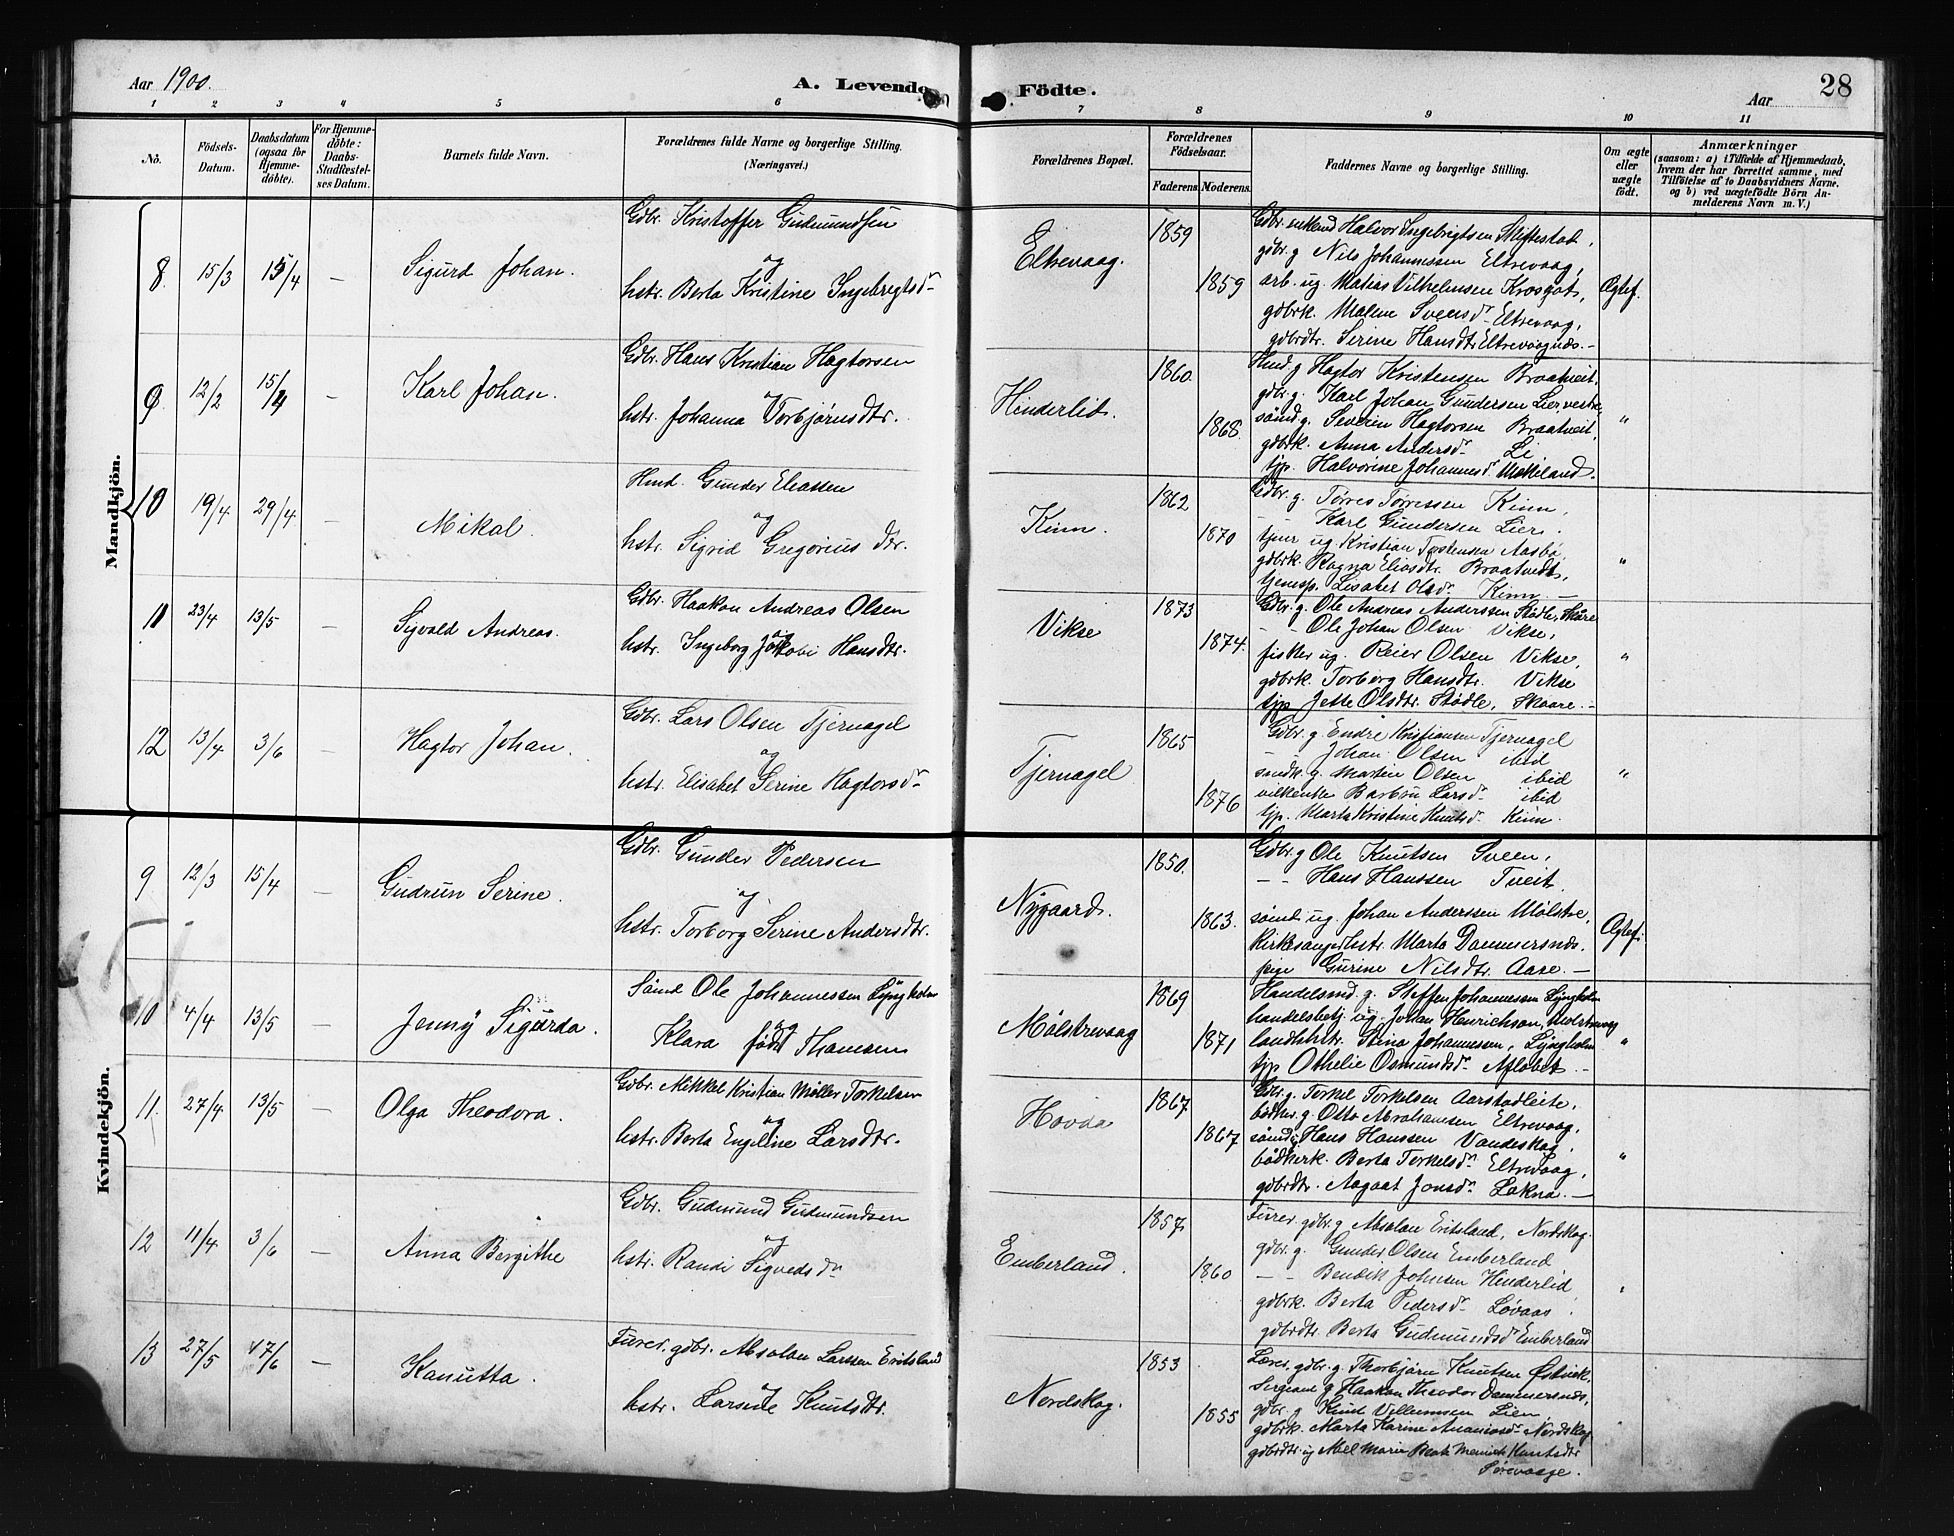 Aar 1900.
A. Levende Födte.
28
Aar
1 2 3 4 5 6 7 8 9 10 11
No.
Födsels-Datum.
Daabsdatum (ogsaa for Hjemme-döbte).
For Hjemme-döbte: Daabs-Stadfæstel-ses Datum.
Barnets fulde Navn.
Forældrenes fulde Navne og borgerlige Stilling. (Næringsvei.)
Forældrenes Bopæl.
Forældrenes Födselsaar.
Faderens. Moderens.
Faddernes Navne og borgerlige Stilling.
Om ægte eller uægte födt.
Anmærkninger
(saasom: a) i Tilfælde af Hjemmedaab, hvem der har forrettet samme, med Tilföielse af to Daabsvidners Navne, og b) ved uægtefödte Börn An-melderens Navn m. V.)
Mandkjön.
8 15/3 15/4 — Sigurd Johan.
Gdbr. Kristoffer Gudmundsen
og
hstr. Berta Kristine Ingebregtsdr
Eltrevaag. 1859 1859
Gdbr. enkemd Halvor Ingebrigtsen Skiftestad,
gdbr. g Nils Johannessen Eltrevaag,
arb. ug. Matias Vilhelmsen Krosgat,
gdbrk. Malene Svensdr Eltrevaag,
gdbrdtr. Serine Hansdtr Eltrevaagnæs. —
Ægtef.
9 12/2 15/4 — Karl Johan.
Gdbr. Hans Kristian Hagtorsen
og
hstr. Johanna Torbjørnsdtr.
Hinderlid. 1860 1868
Hmd g Hagtor Kristensen Braatveit,
gdbr. g. Karl Johan Gundersen Lier vestre,
sømd. g. Severin Hagtorsen Braatveit,
gdbrk. Anna Andersdr Li
tjp. Halvorine Johannesdr Mækeland.
"
10 19/4 29/4 — Mikal.
Hmd. Gunder Eliassen
og
hstr. Sigrid Gregorius dtr.
Kinn. 1862 1870
Gdbr. g. Tørres Tørressen Kinn,
— Karl Gundersen Lier.
tjner ug. Kristian Torstensen Aasbø,
gdbrk. Ragna Eliasdtr. Braatvedt,
tjenesp. Lisabet Olsdr Kinn. —
"
11 23/4 13/5 — Sigvald Andreas.
Gdbr. Haakon Andreas Olsen
og
hstr. Ingeborg Jakobi Hansdtr.
Vikse 1873 1874.
Gdbr. g. Ole Andreas Anderssen Stødle, Skaare
— - Ole Johan Olsen Vikse,
fisker ug. Reier Olsen Vikse,
gdbrk. Torborg Hansdtr. Vikse
tjp Jette Olsdtr. Stødle, Skaare. —
"
12 13/4 3/6 — Hagtor Johan.
Gdbr. Lars Olsen Tjernagel
og
hstr. Elisabet Serine Hagtorsdr
Tjernagel 1865 1876
Gdbr. g. Endre Kristiansen Tjernagel
Johan Olsen ibid
g. Martin Olsen ibid
Larsdr ibid
tjp. Marta Kristine Knutsdr Kinn.
"
Kvindekjön.
9 12/3 15/4 — Gudrun Serine.
Gdbr. Gunder Pedersen
og
hstr. Torborg Serine Andersdtr.
Nygaard. 1850. 1863.
Gdbr. g Ole Knutsen Sveen,
— - Hans Hanssen Tveit.
sømd. ug. Johan Anderssen Mølstre,
Kirkesangerhstr. Marta Dammersnæs,
pige Gurine Nilsdtr. Aase. —
Ægtef.
10 4/4 13/5 — Jenny Sigurda.
Sømd Ole Johannessen Lyngholm
og
Klara født Thomsen
Mølstrevaag 1869 1871
Handelsmd. g. Steffen Johannessen Lyngholm
handelsbetj. ug. Johan Henrichsen, Mølstrevaag
landhhstr. Stina Johannessen, Lyngholm
tjp Othelie Osmundsdr Afløbet. —
"
11. 27/4 13/5 — Olga Theodora.
Gdbr. Mikkel Kristian Møller Torkelsen
og
hstr. Berta Engeline Larsdtr.
Hovda 1867 1867
Gdbr. g. Torkel Torkelsen Aarstadleite,
bødker. g. Otto Abrahamsen Eltrevaag,
sømd g. Hans Hanssen Vandeskog,
bødkerk. Berta Torkelsdr Eltrevaag,
gdbrdtr. Aagaat Jonsdr Løkna. —
"
12 11/4 3/6 — Anna Bergithe
Gdbr. Gudmund Gudmundsen
og
hstr. Randi Sigvedsdr
Emberland. 1857 1860
Furer, gdbr. g Absalon Eritsland, Nordskog.
gdbr. g. Gunder Olsen Emberland
— - Bendik Johnsen Hinderlid
gdbrk. Berta Pedersdr Løvaas.
gdbrdtr. Berta Gudmundsdr Emberland
"
13 27/5 17/6 — Kanutta.
Furer. gdbr. Absalon Larssen Eritsland
og
hstr. Larsine Knutsdtr.
Nordskog. 1853 1855
Lærer, gdbr. g. Thorbjørn Knutsen Østvik,
Sergeant g Haakon Theodor Dammersnæs,
gdbr. g Knud Villumsen Lien
gdbrk. Marta Karine Ananiasdr Nordskog
gdbrdtr. ug Abel Marie Beate Knutsdtr
Sørevaage.